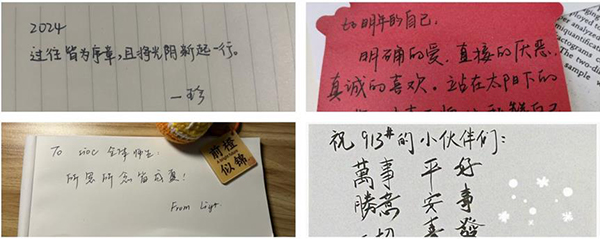 2024
过往皆为序章，且将光阴新起一行。
一珍
to 明年的自己，
明确的爱，直接的厌恶，
真诚的喜欢。站在太阳下的
quantized
sample
To SIOC 全体师生，
所思所念皆成真！
From Light.
前橙
似锦
祝 913#的小伙伴们：
萬事 平 好
勝意 安 事
一切 喜 發